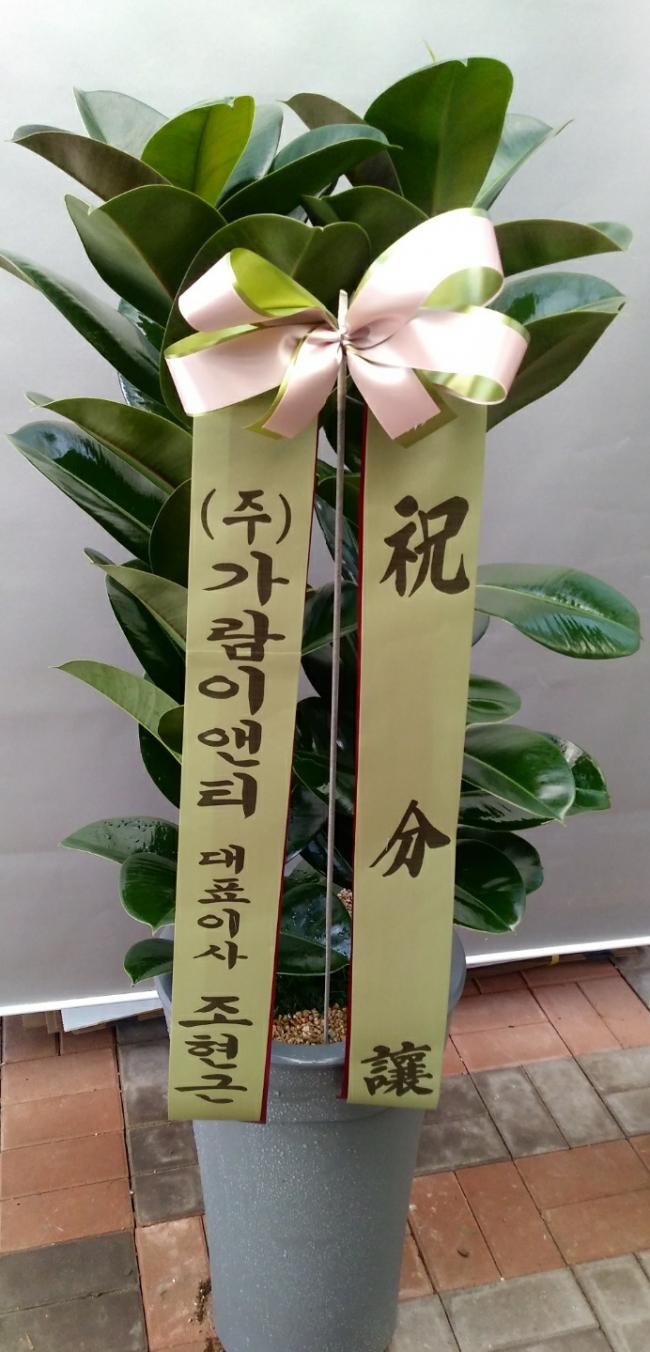 祝分讓
(주)가람이앤티 대표이사 조현근